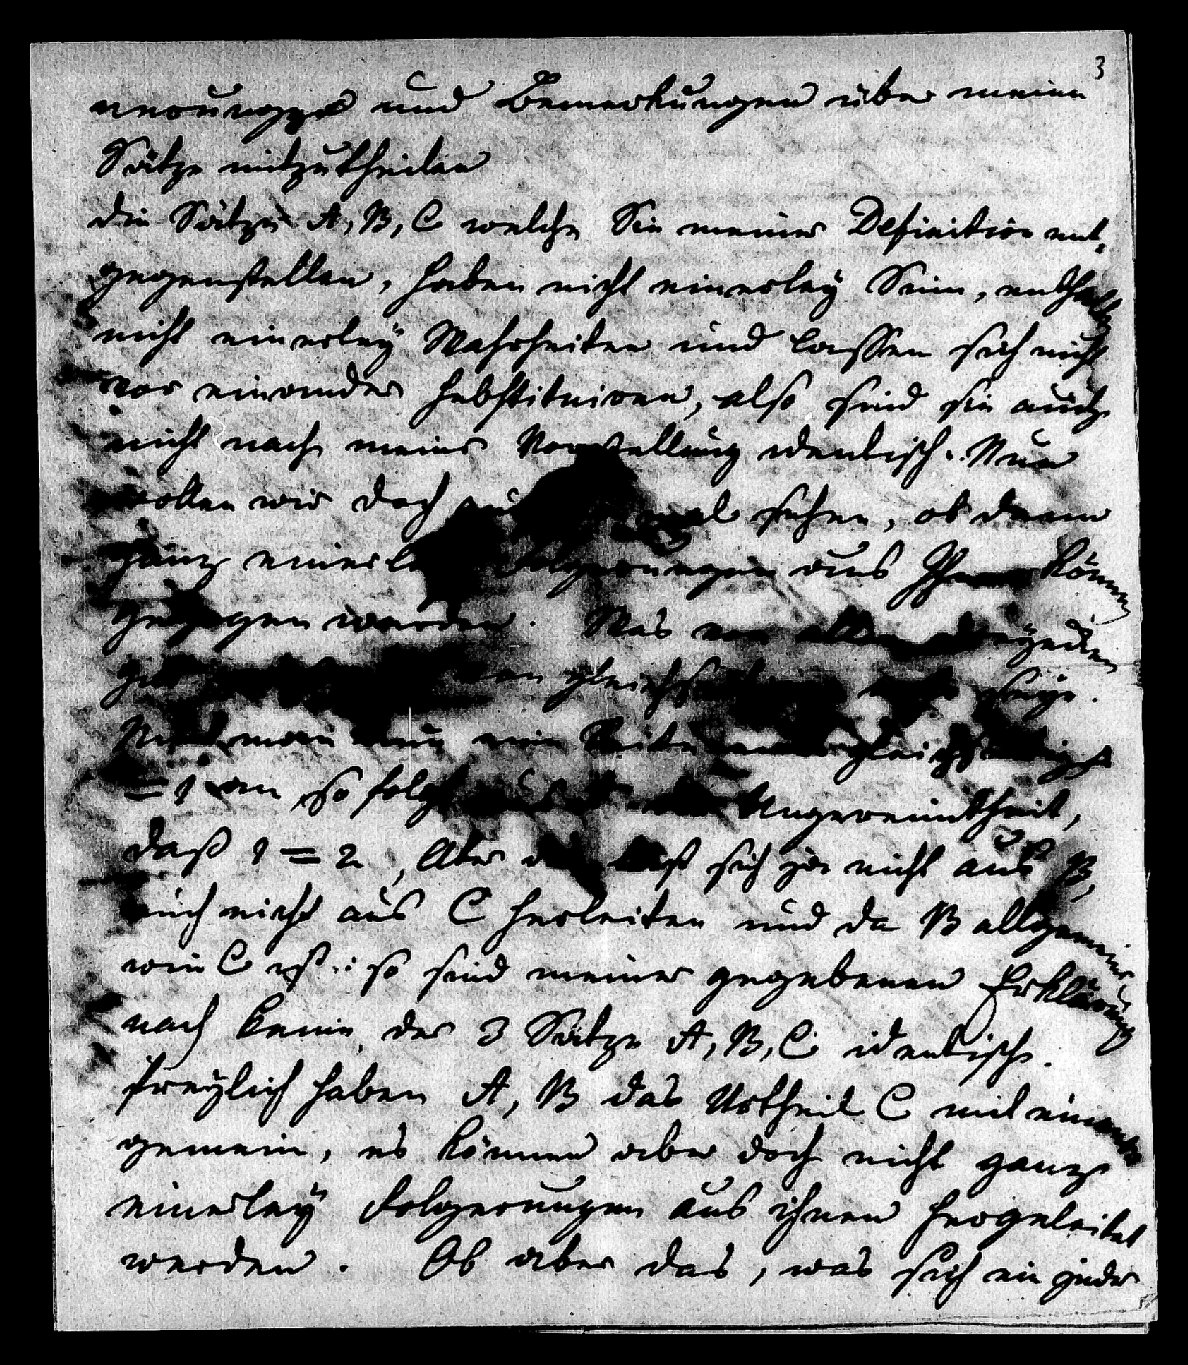 3
und Bemerkungen über meine
Sätze mitzutheilen
die Sätze A, B, C welche Sie meiner Definition ent-
gegenstellen, haben nicht einerley Sinn, enthalten
nicht einerley Wahrheiten und lassen sich nicht
vor einander substituiren, also sind sie auch
nicht nach meiner Vorstellung identisch. Nun
wollen wir doch sehen, ob denn
ganz einerley Folgerungen aus Ihnen können
gezogen werden. Was von allen
Nimmt man nun eine Seite
= 1 an so folgt aus Ungereimtheit,
daß 1 = 2, Aber läßt sich ja nicht aus B,
auch nicht aus C herleiten und da B allgemeiner
wie C ist: so sind meiner gegebenen Erklärung
nach keine der 3 Sätze A, B, C identisch.
Freylich haben A, B das Urtheil C mit einander
gemein, es können aber doch nicht ganz
einerley Folgerungen aus ihnen hergeleitet
werden. Ob aber das, was sich ein jeder